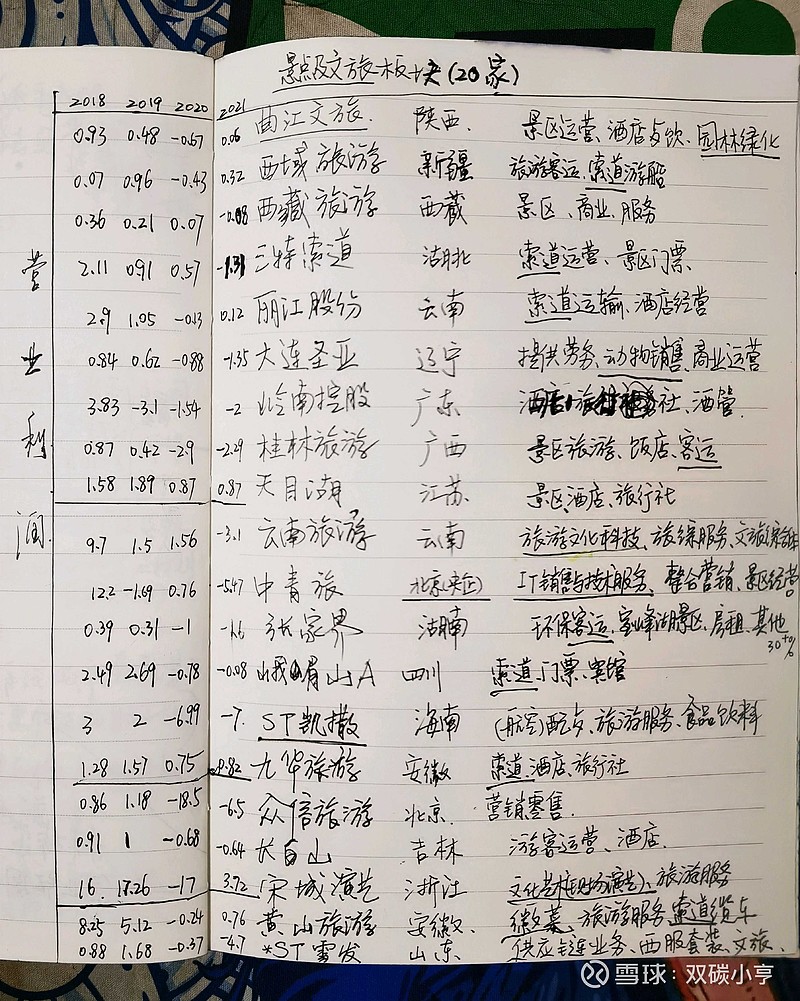 景点及文旅板块(20家)
2018 2019 2020 2021
营业利润
0.93 0.48 -0.67 0.06 曲江文旅 陕西 景区运营、酒店与饮、园林绿化
0.07 0.96 -0.43 0.32 西域旅游 新疆 旅游客运、索道游船
0.36 0.21 0.07 -0.08 西藏旅游 西藏 景区、商业、服务
2.11 0.91 0.57 -1.31 三特索道 湖北 索道运营、景区门票
2.9 1.05 -0.13 0.12 丽江股份 云南 索道运输、酒店经营
0.84 0.62 -0.88 -1.35 大连圣亚 辽宁 提供劳务、动物销售、商业运营
3.83 -3.1 -1.54 -2 岭南控股 广东 酒店、旅行社、酒管
0.87 0.42 -2.9 -2.29 桂林旅游 广西 景区旅游、饭店、客运
1.58 1.89 0.87 0.87 天目湖 江苏 景区、酒店、旅行社
9.7 1.5 1.56 -3.1 云南旅游 云南 旅游文化科技、旅综服务、文旅综合体
12.2 -1.69 0.76 -5.47 中青旅 北京(央企) IT销售与技术服务、整合营销、景区经营
0.39 0.31 -1 -1.6 张家界 湖南 环保客运、宝峰湖景区、房租、其他
30+%
2.49 2.69 -0.78 -0.08 峨眉山A 四川 索道、门票、宾馆
3 2 -6.99 -7. ST凯撒 海南 (航空)配与、旅游服务、食品饮料
1.28 1.57 0.75 0.82 九华旅游 安徽 索道、酒店、旅行社
0.86 1.18 -18.5 -6.5 众信旅游 北京. 营销零售.
0.91 1 -0.68 -0.64 长白山 吉林 游客运营、酒店.
16. 17.26 -17 3.72 宋城演艺 浙江 文化艺术(现场演艺)、旅游服务
8.25 5.12 -0.24 0.76 黄山旅游 安徽. 徽菜、旅游服务、索道缆车
0.88 1.68 -0.37 -4.7 *ST雪发 山东 供应链业务、西服套装、文旅.
雪球:双碳小亨